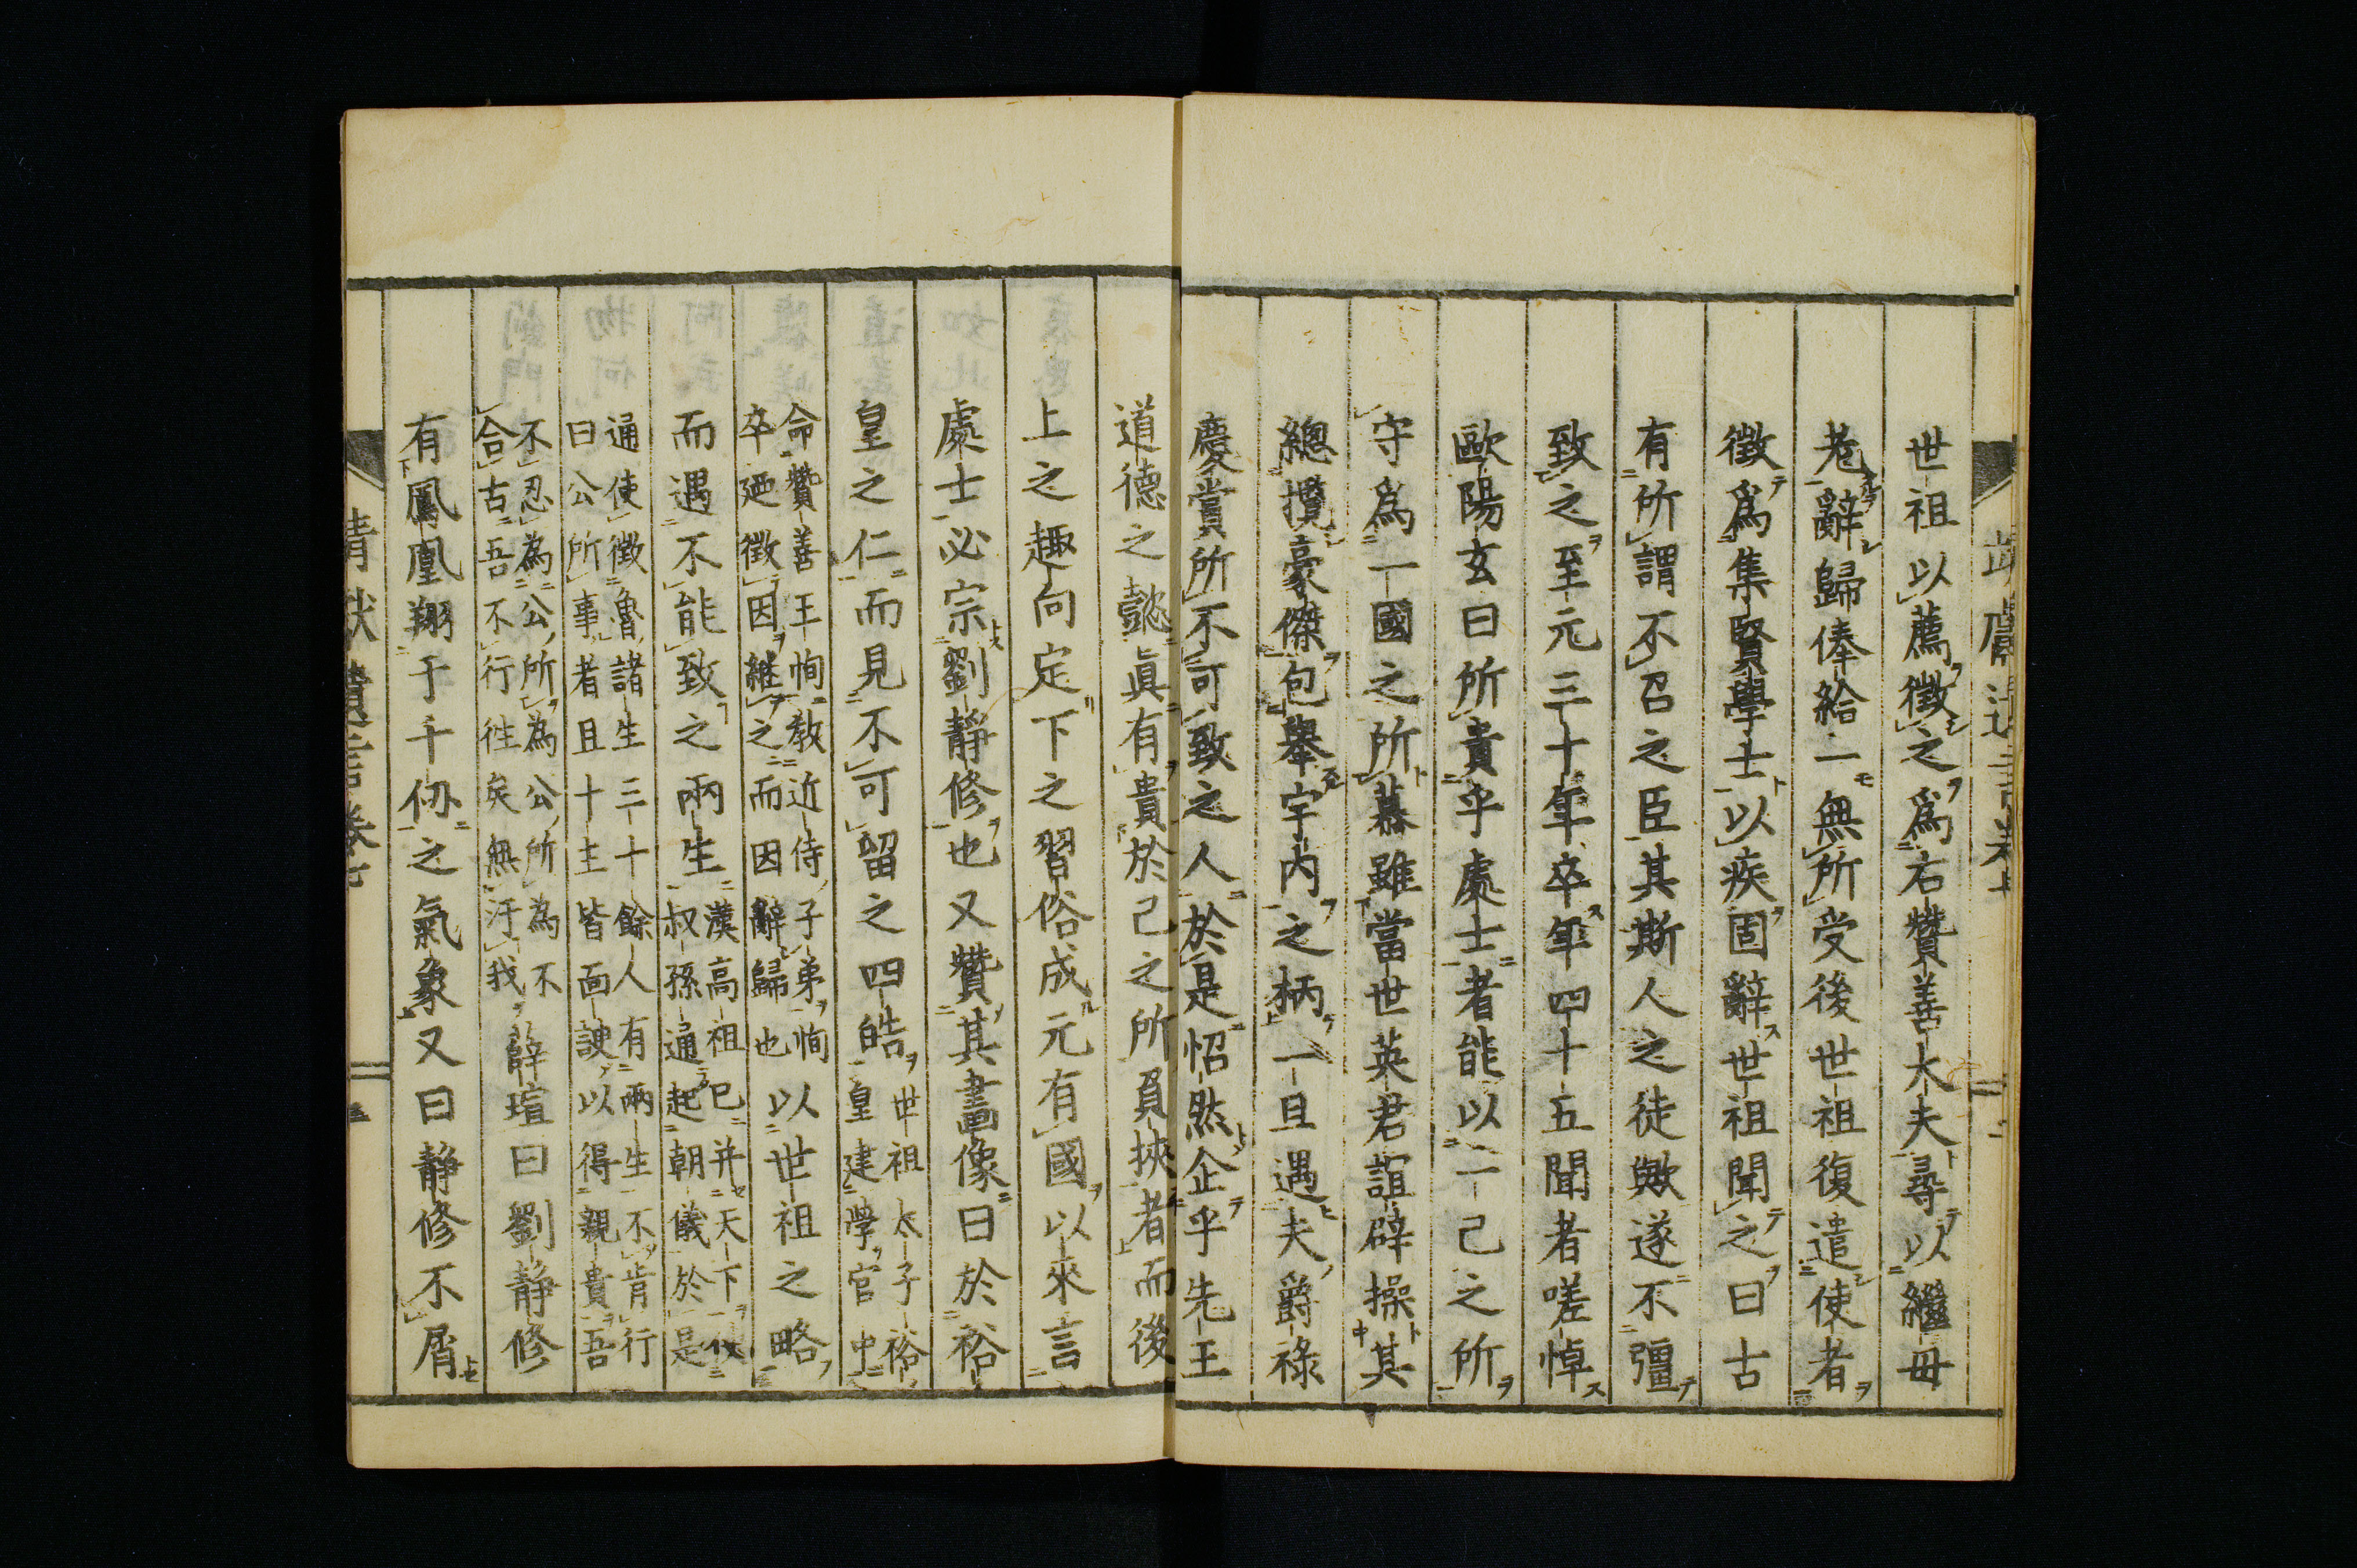 世祖以薦徵之為右贊善大夫尋以繼毋
老辭歸俸給一無所受後世祖復遣使者
徵為集賢學士以疾固辭世祖聞之曰古
有所謂不召之臣其斯人之徒歟遂不彊
致之至元三十年卒年四十五聞者嗟悼
歐陽玄曰所貴乎處士者能以一己之所
守為一國之所慕雖當世英君誼辟操其
總攬豪傑包舉宇内之柄一旦遇夫爵祿
慶賞所不可致之人於是怊然企乎先王
道德之懿眞有貴於己之所負挾者而後
上之趣向定下之習俗成元有國以來言
處士必宗劉静修也又贊其畫像曰於裕
皇之仁而見不可留之四皓世祖太子裕
皇建學官中
命贊善王恂教近侍子弟恂
卒廼徵因繼之而因辭歸也以世祖之略
而遇不能致之兩生漢高祖已并天下
叔孫通起朝儀於是
通使徵魯諸生三十餘人有兩生不肯行
曰公所事者且十主皆面諛以得親貴吾
不忍為公所為公所為不
合古吾不行徃矣無汙我薛瑄曰劉静修
有鳳凰翔于千仭之氣象又曰静修不屑